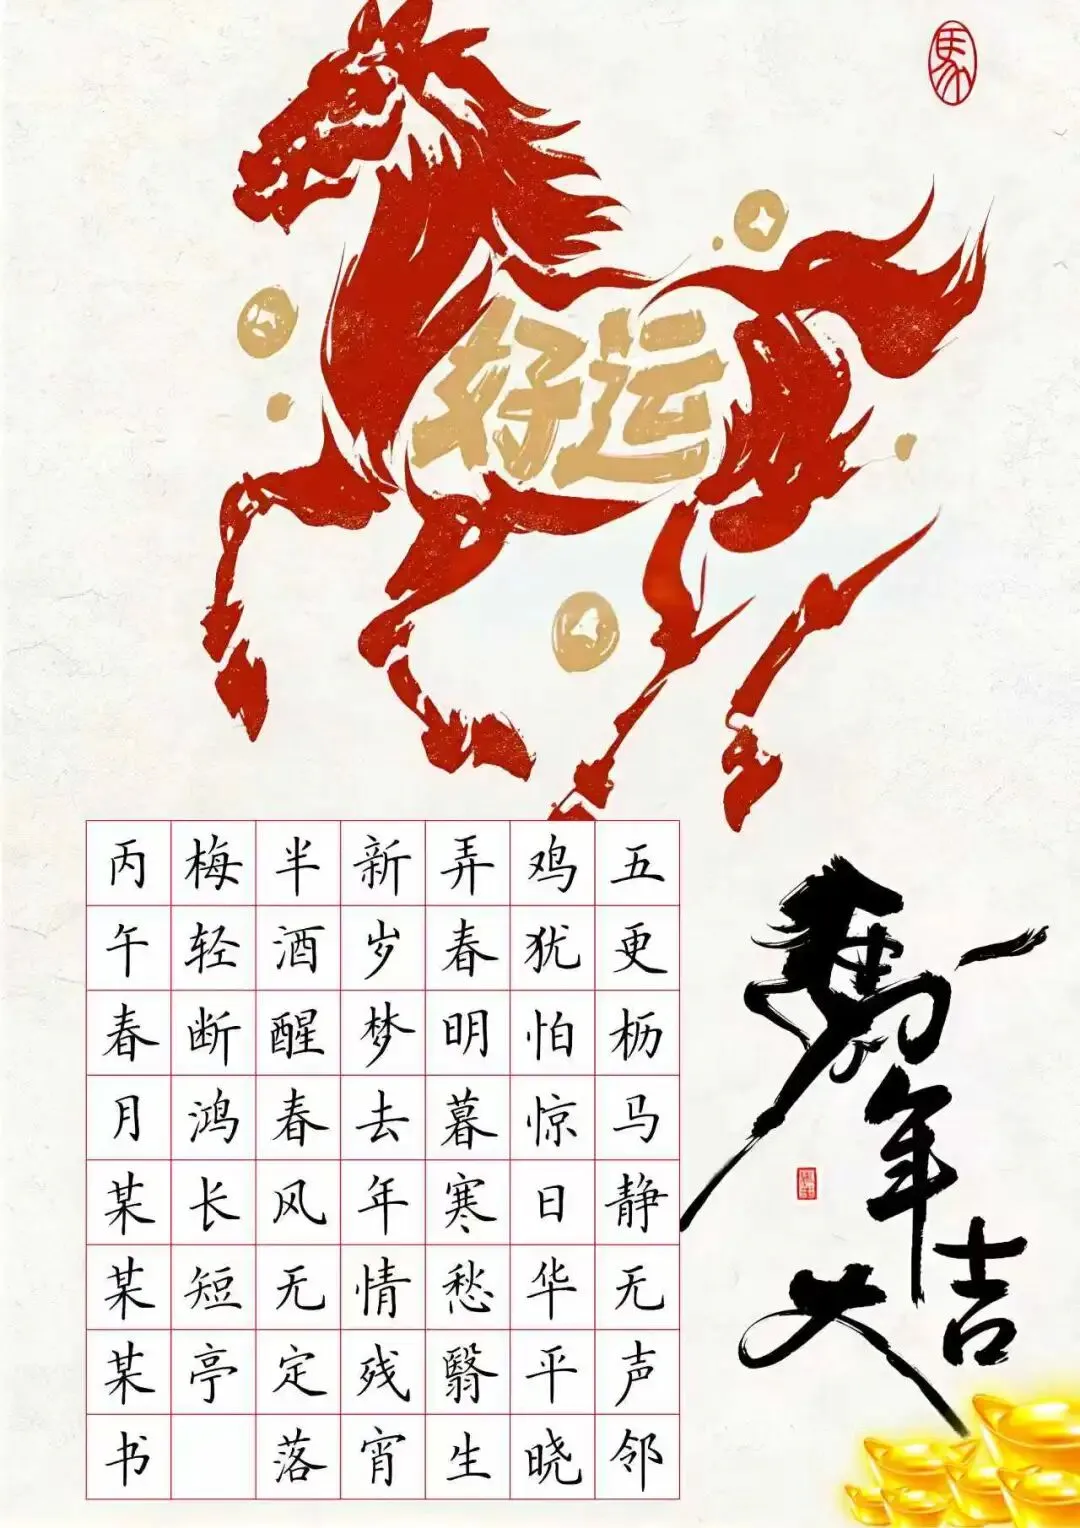 馬
好运
五更枥马静无声邻
鸡犹怕惊日华平晓
弄春明暮寒愁翳生
新岁梦去年情残宵
半酒醒春风无定落
梅轻断鸿长短亭
丙午春月某某某书
馬年
大吉